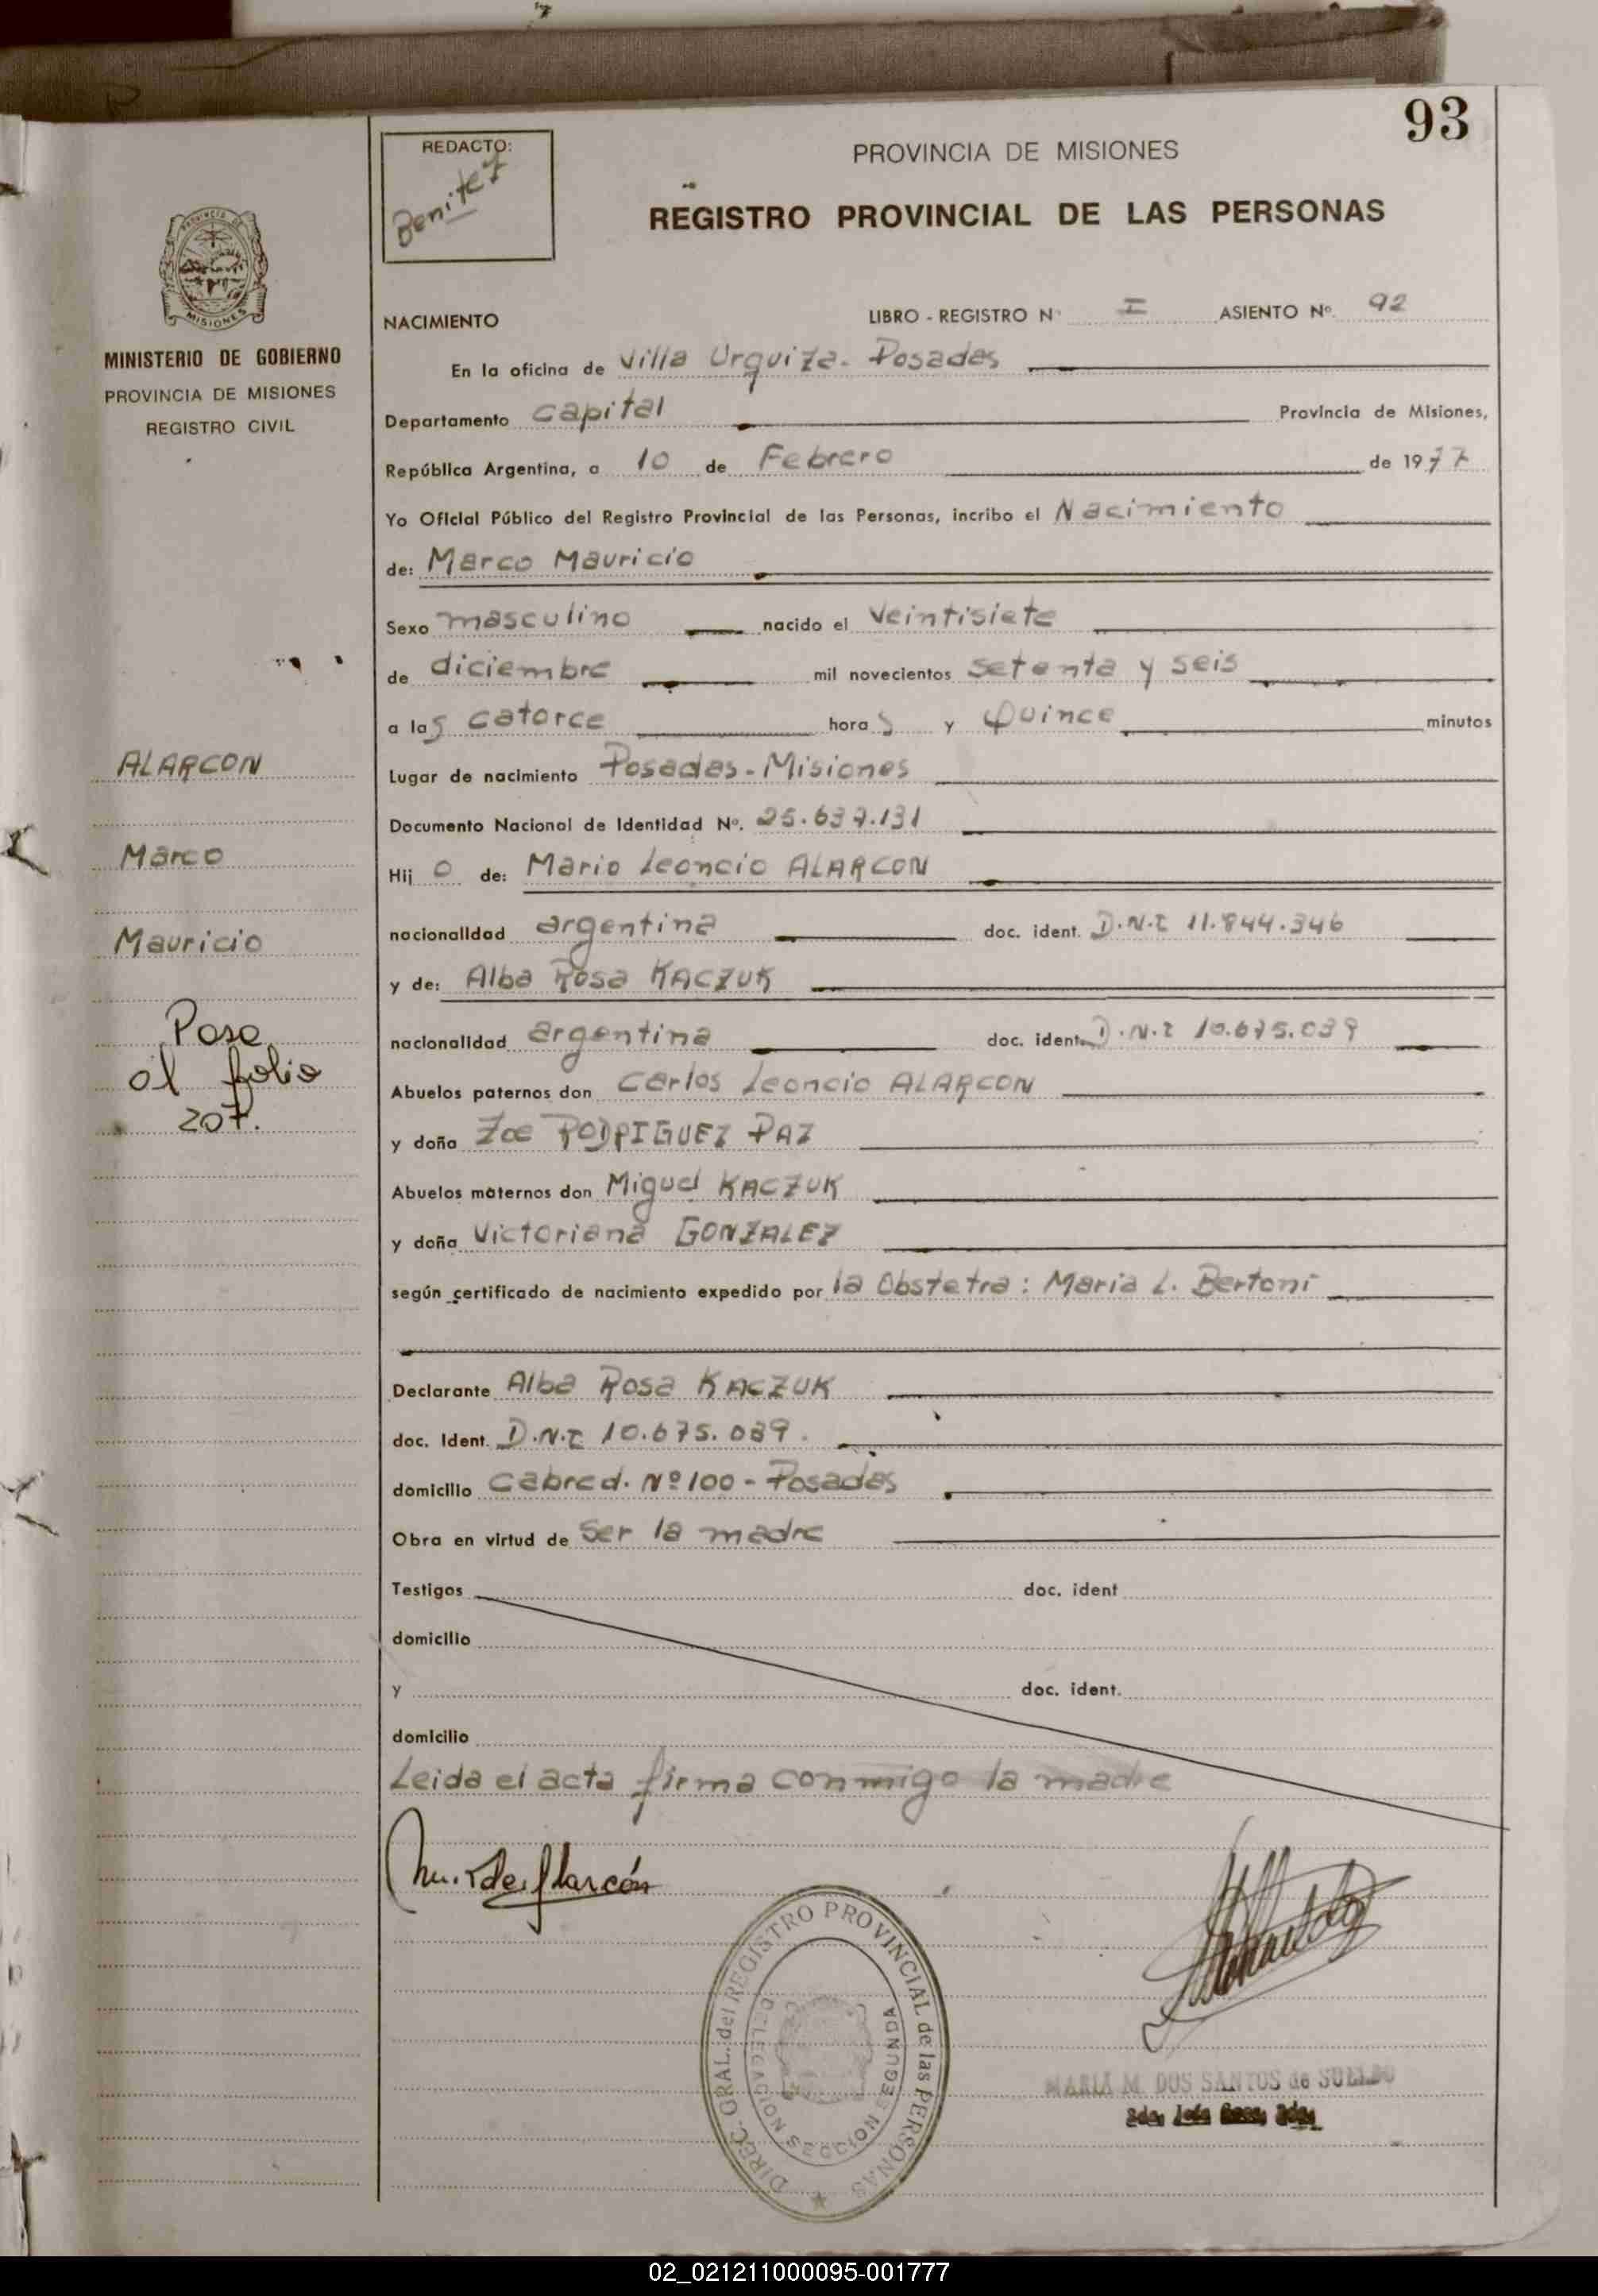 93
REDACTO:
Benitez
PROVINCIA DE MISIONES
REGISTRO PROVINCIAL DE LAS PERSONAS
PROVINCIA DE
MISIONES
MINISTERIO DE GOBIERNO
PROVINCIA DE MISIONES
REGISTRO CIVIL
ALARCON
Marco
Mauricio
Pase
al folio
207.
NACIMIENTO LIBRO - REGISTRO N° I ASIENTO Nº 92
En la oficina de Villa Urquiza - Posadas
Departamento Capital Provincia de Misiones,
República Argentina, a 10 de Febrero de 1977
Yo Oficial Público del Registro Provincial de las Personas, incribo el Nacimiento
de: Marco Mauricio
Sexo masculino nacido el Veintisiete
de diciembre mil novecientos setenta y seis
a las catorce horas y Quince minutos
Lugar de nacimiento Posadas - Misiones
Documento Nacional de Identidad Nº. 25.637.131
Hijo de: Mario Leoncio ALARCON
nacionalidad argentina doc. ident. D.N.I 11.844.346
y de: Alba Rosa KACZUK
nacionalidad argentina doc. ident. D.N.I 10.675.039
Abuelos paternos don Carlos Leoncio ALARCON
y doña Zoe RODRIGUEZ PAZ
Abuelos maternos don Miguel KACZUK
y doña Victoriana GONZALEZ
según certificado de nacimiento expedido por la Obstetra: Maria L. Bertoni
Declarante Alba Rosa KACZUK
doc. Ident. D.N.I 10.675.039.
domicilio Cabred. Nº 100 - Posadas
Obra en virtud de Ser la madre
Testigos doc. ident
domicilio
y doc. ident.
domicilio
Leida el acta firma conmigo la madre
de Alarcón
DIREC. GRAL. del REGISTRO PROVINCIAL de las PERSONAS
DELEGACION SECCION SEGUNDA
MARIA M. DOS SANTOS de SUELDO
02_021211000095-001777